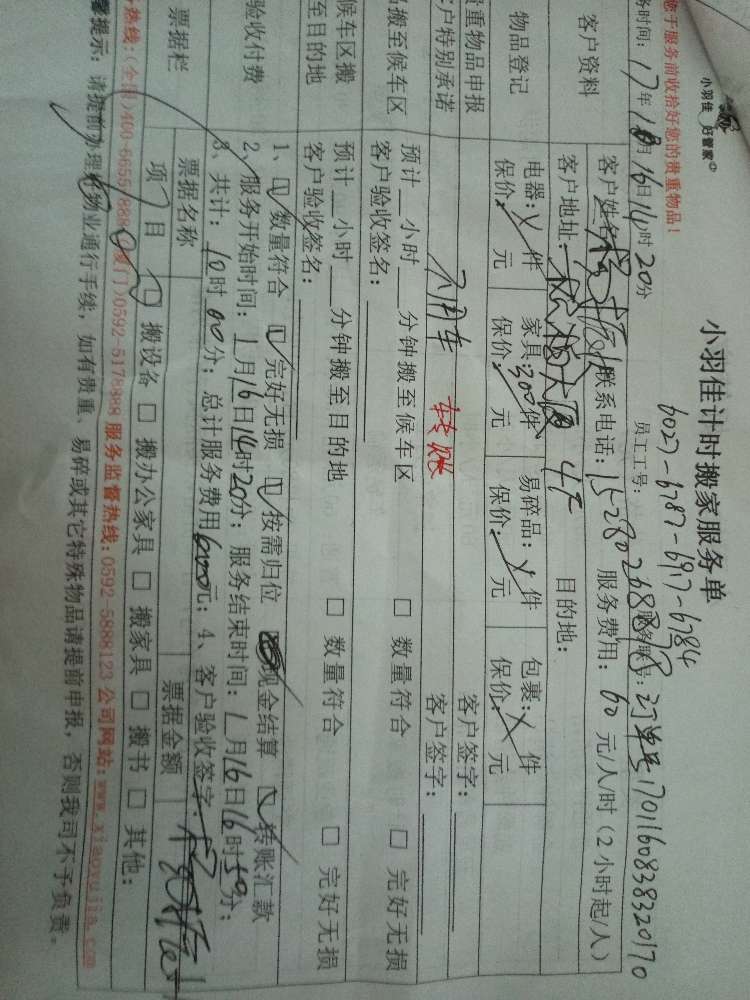 小羽佳 好管家
小羽佳计时搬家服务单
您于服务前收拾好您的贵重物品!
6027-6787-6917-6784
务时间: 17年 1月16日14时20分 员工工号: 服务账号: 订单号1701160838320170
客户资料
客户姓名: 联系电话: 服务费用: 60 元/人/时 (2小时起/人)
客户地址: 4F 目的地:
物品登记
电器: 件 家具: 300 件 易碎品: 件 包裹: 件
保价: 元 保价: 元 保价: 元 保价: 元
贵重物品申报 客户签字:
客户特别承诺 不用车 转账 客户签字:
品搬至候车区
预计 小时 分钟搬至候车区 □ 数量符合 □ 完好无损
客户验收签名:
候车区搬至目的地
预计 小时 分钟搬至目的地 □ 数量符合 □ 完好无损
客户验收签名:
验收付费
1、 数量符合 完好无损 按需归位 现金结算 转账汇款
2、服务开始时间: 1月16日14时20分; 服务结束时间: 1月16日16时50分;
3、共计: 10时00分; 总计服务费用600元; 4、客户验收签字:
票据栏
票据名称 票据金额
项目 搬设备 □ 搬办公家具 □ 搬家具 □ 搬书 □ 其他:
务热线:(全国)400-6655-7888 (厦门)0592-5178888 服务监督热线:0592-5888123 公司网站:www.xiaoyujia.com
馨提示: 请提前办理好物业通行手续, 如有贵重、易碎或其它特殊物品请提前申报, 否则我司不予负责。